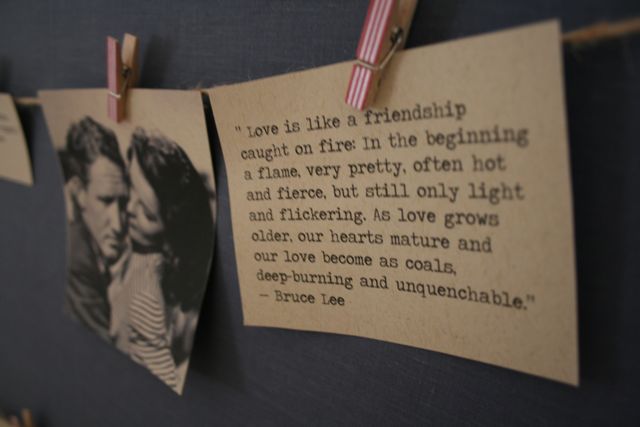 " Love is like a friendship
caught on fire: In the beginning
a flame, very pretty, often hot
and fierce, but still only light
and flickering. As love grows
older, our hearts mature and
our love become as coals,
deep-burning and unquenchable."
— Bruce Lee